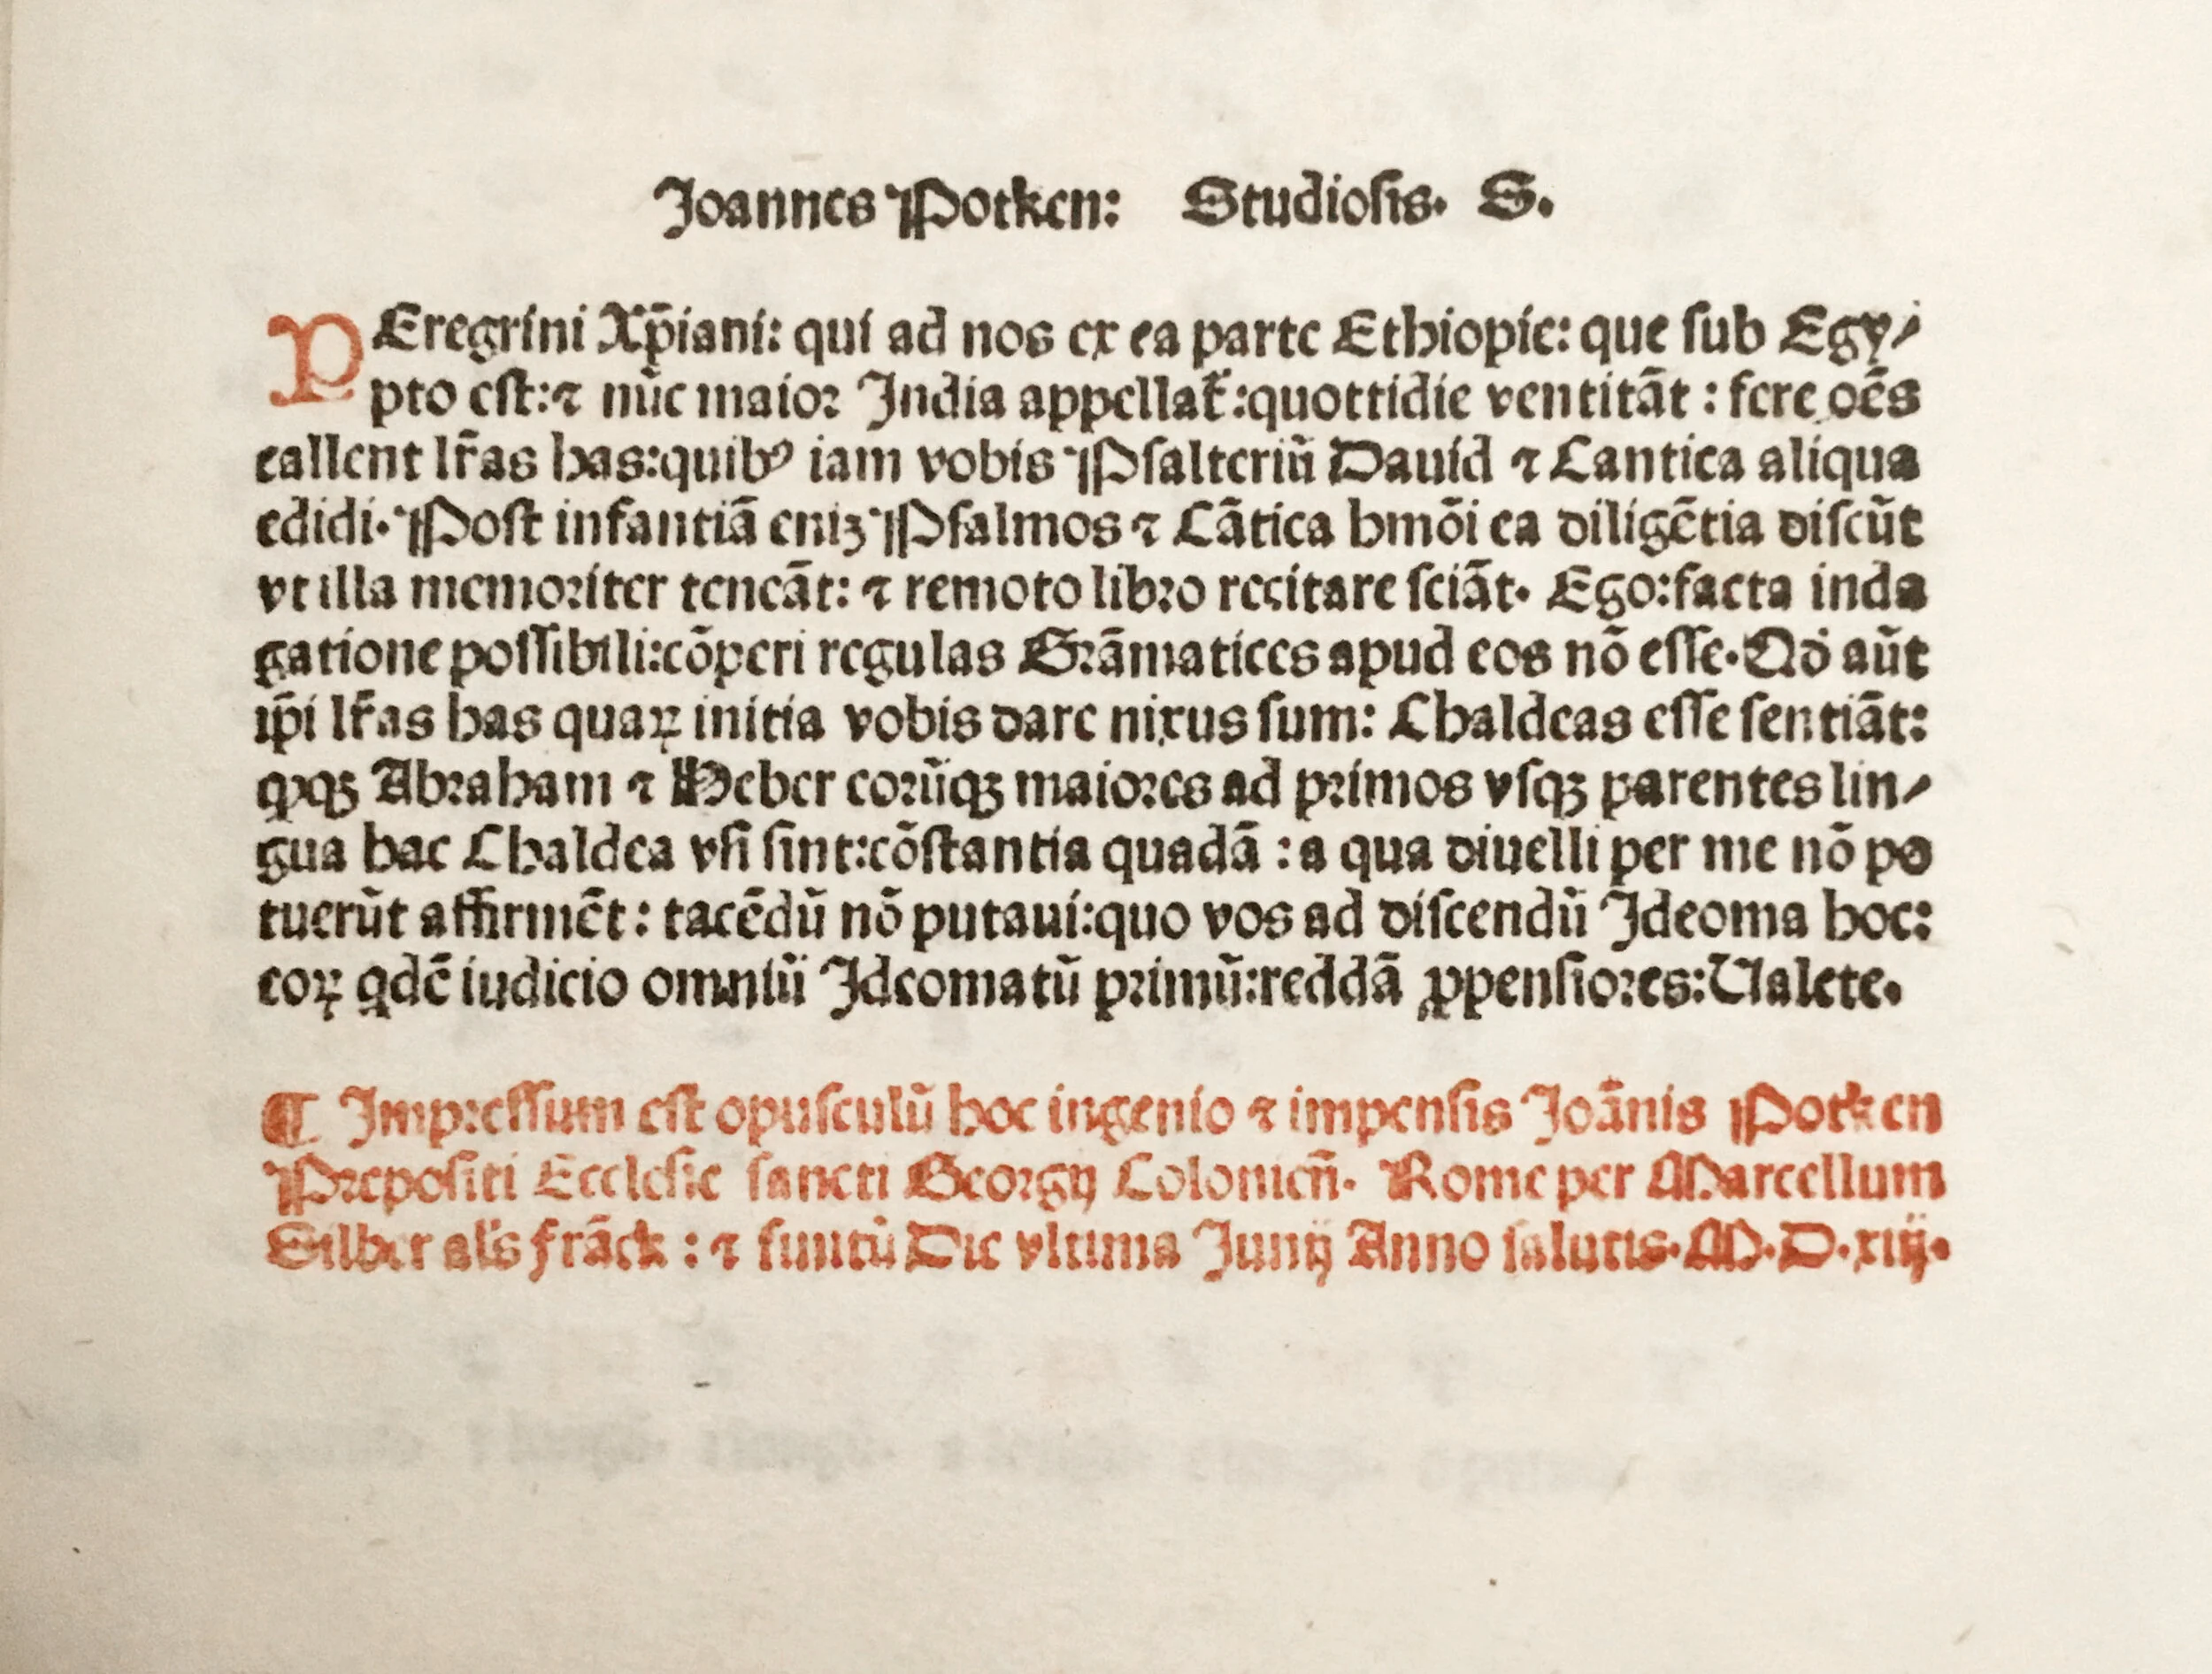 Joannes Potken: Studiosis. S.
PEregrini Xp̄iani: qui ad nos ex ea parte Ethiopie: que sub Egy⸗
pto est:⁊ nūc maior India appellat̄:quottidie ventitāt : fere oēs
callent lr̄as has:quibꝰ iam vobis Psalteriū Dauid ⁊ Cantica aliqua
edidi. Post infantiā eniꝫ Psalmos ⁊ Cātica hmōi ea diligētia discūt
vt illa memoriter teneāt: ⁊ remoto libro recitare sciāt. Ego:facta inda
gatione possibili:cōperi regulas Grāmatices apud eos nō esse. Qd̄ aūt
ip̄i lr̄as has quaꝝ initia vobis dare nixus sum: Chaldeas esse sentiāt:
ꝙqꝫ Abraham ⁊ Heber eorūqꝫ maiores ad primos vsqꝫ parentes lin⸗
gua hac Chaldea vsi sint:cōstantia quadā : a qua diuelli per me nō po
tuerūt affirmēt : tacēdū nō putaui:quo vos ad discendū Ideoma hoc:
eoꝝ qdē iudicio omniū Ideomatū primū:reddā ꝓpensiores:Ualete.
¶ Impressum est opusculū hoc ingenio ⁊ impensis Joānis Potken
Prepositi Ecclesie sancti Georgij Colonien̄. Rome per Marcellum
Silber al's frāck : ⁊ finitū Die vltima Junij Anno salutis. M.D.xiij.